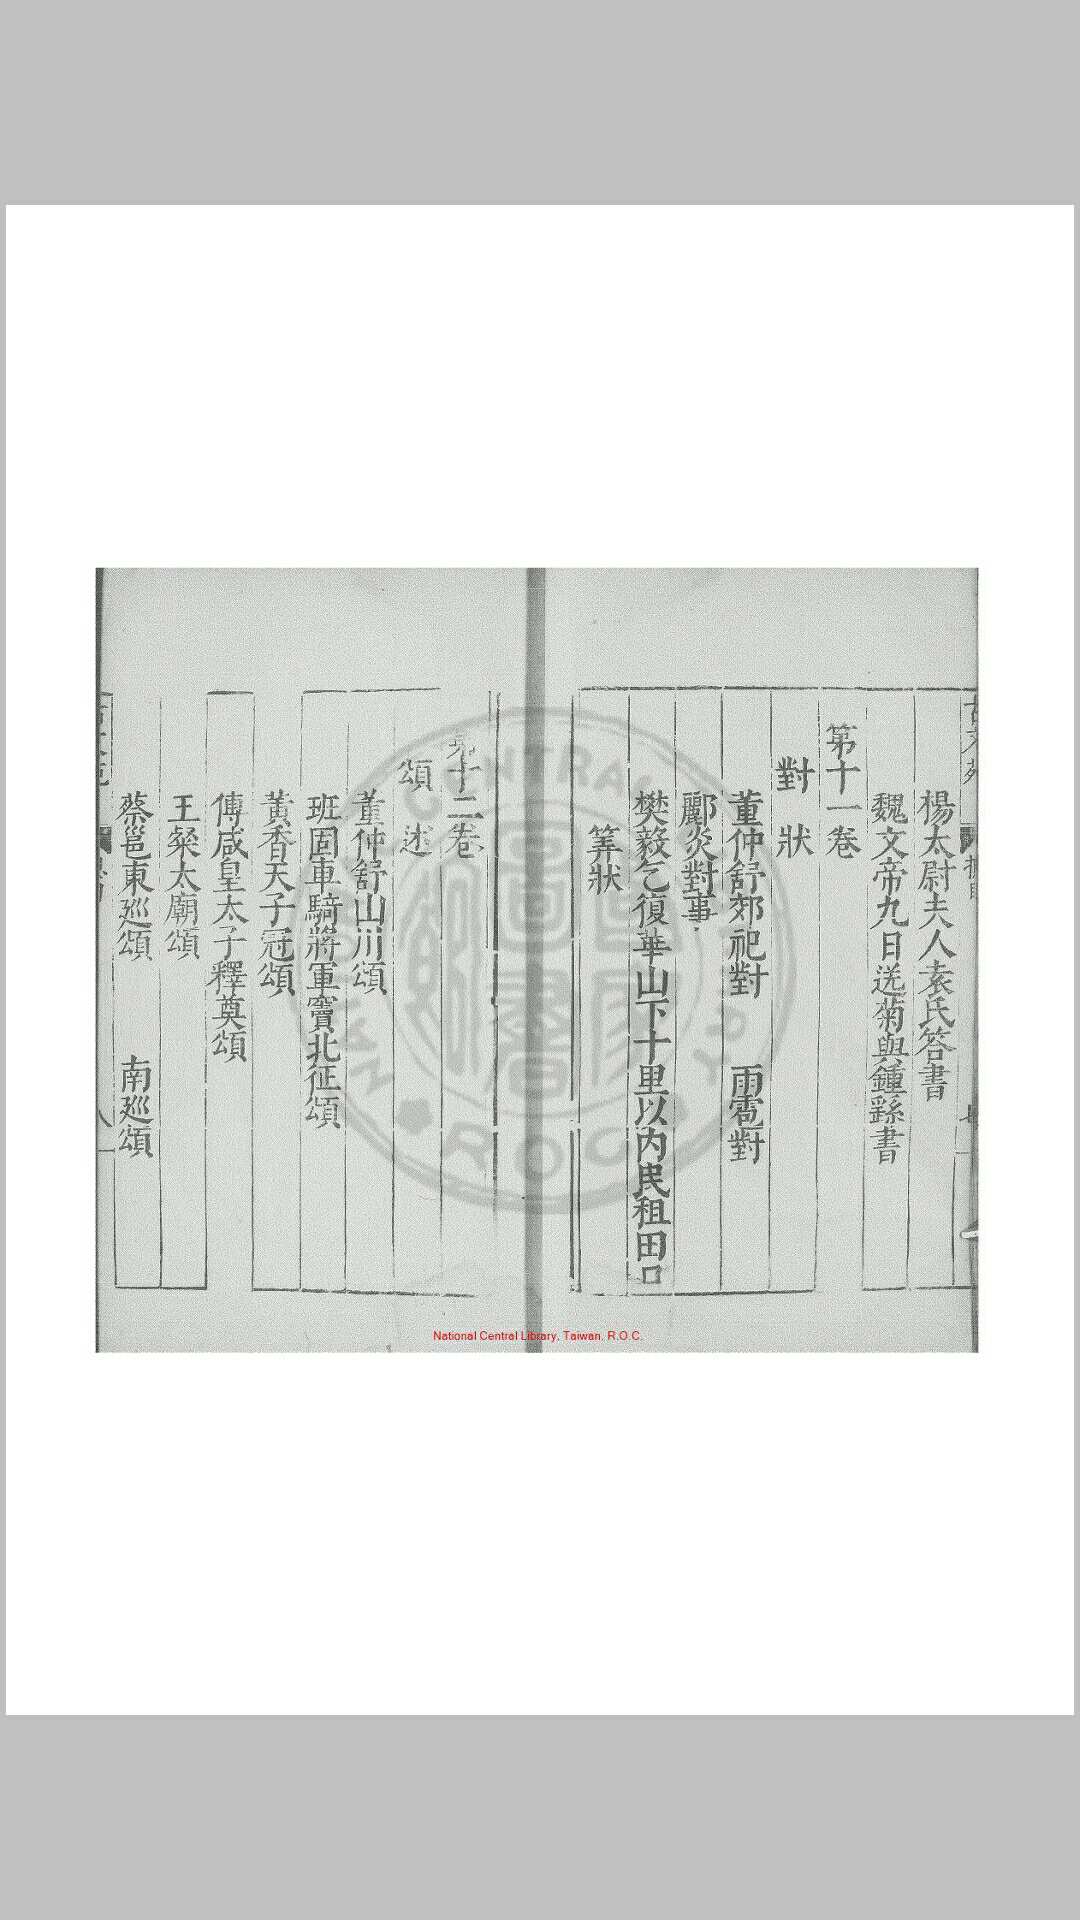 楊太尉夫人袁氏答書
魏文帝九日送菊與鍾繇書
第十一卷
對 狀
董仲舒郊祀對 雨雹對
酈炎對事
樊毅乞復華山下十里以內民租田口
筭狀
第十二卷
頌 述
董仲舒山川頌
班固車騎將軍竇北征頌
黃香天子冠頌
傅咸皇太子釋奠頌
王粲太廟頌
蔡邕東巡頌 南巡頌
National Central Library, Taiwan, R.O.C.